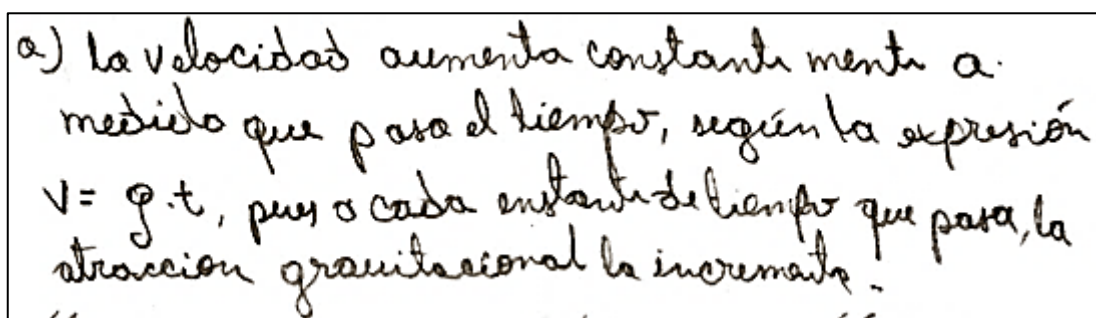 a) La velocidad aumenta constantemente a
medida que pasa el tiempo, según la expresión
V = g.t, pues a cada instante de tiempo que pasa, la
atraccion gravitacional la incrementa.